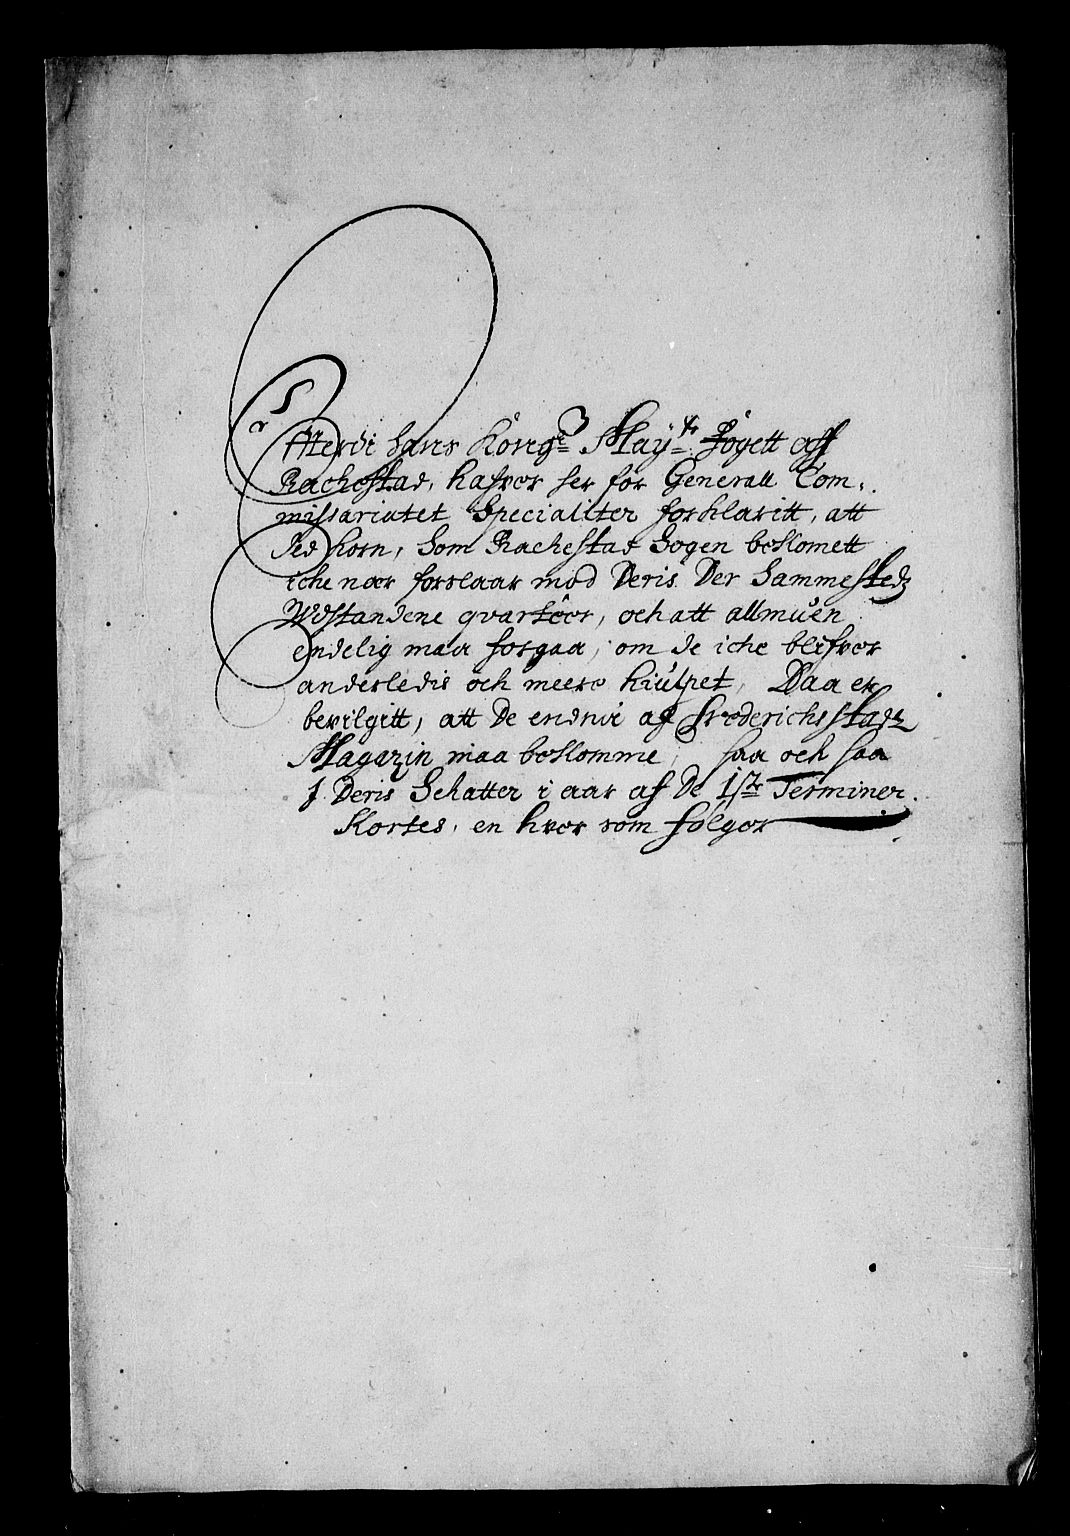 Efftterdi hans Kongl: May:tz fogett aff
Rachestad, hafver her for Generall Com¬
missariatet Specialiter forklaritt, att
det Korn, Som Rachestad Sogen bekomett
iche nær forslaar mod Deris Der Sammesteds
Udstandene qvarteer, och att allmuen
endelig maa forgaa, om de iche blifver
anderledis och meere hiulpet, Daa er
bevilgitt, att De endnu af Frederichsstads
Magazin maa bekomme, saa och saa
J Deris Schatter i aar af De Terminer
Kortes, en hver som følger